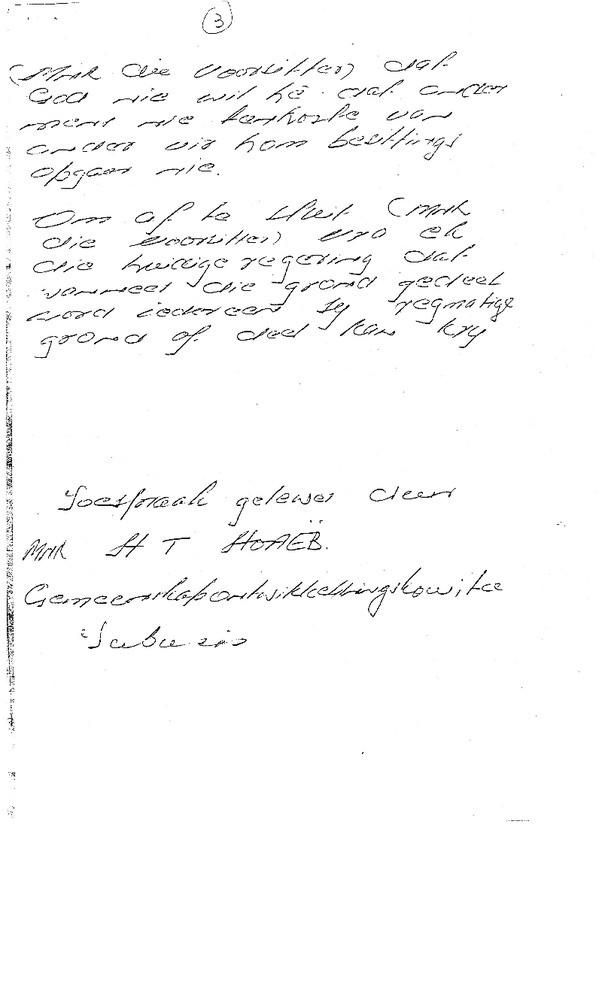 3
(Mnr die Voorsitter) dat
God nie wil hê dat ander
mens nie ten koste van
ander vir hom besittings
opgaar nie.
Om af te sluit (Mnr
die Voorsitter) vra ek
die huidige regering dat
wanneer die grond gedeel
word iedereen sy regmatige
grond of deel kan kry
Toespraak gelewer deur
MNR H T HOAËB.
Gemeenskapontwikkelingskomitee